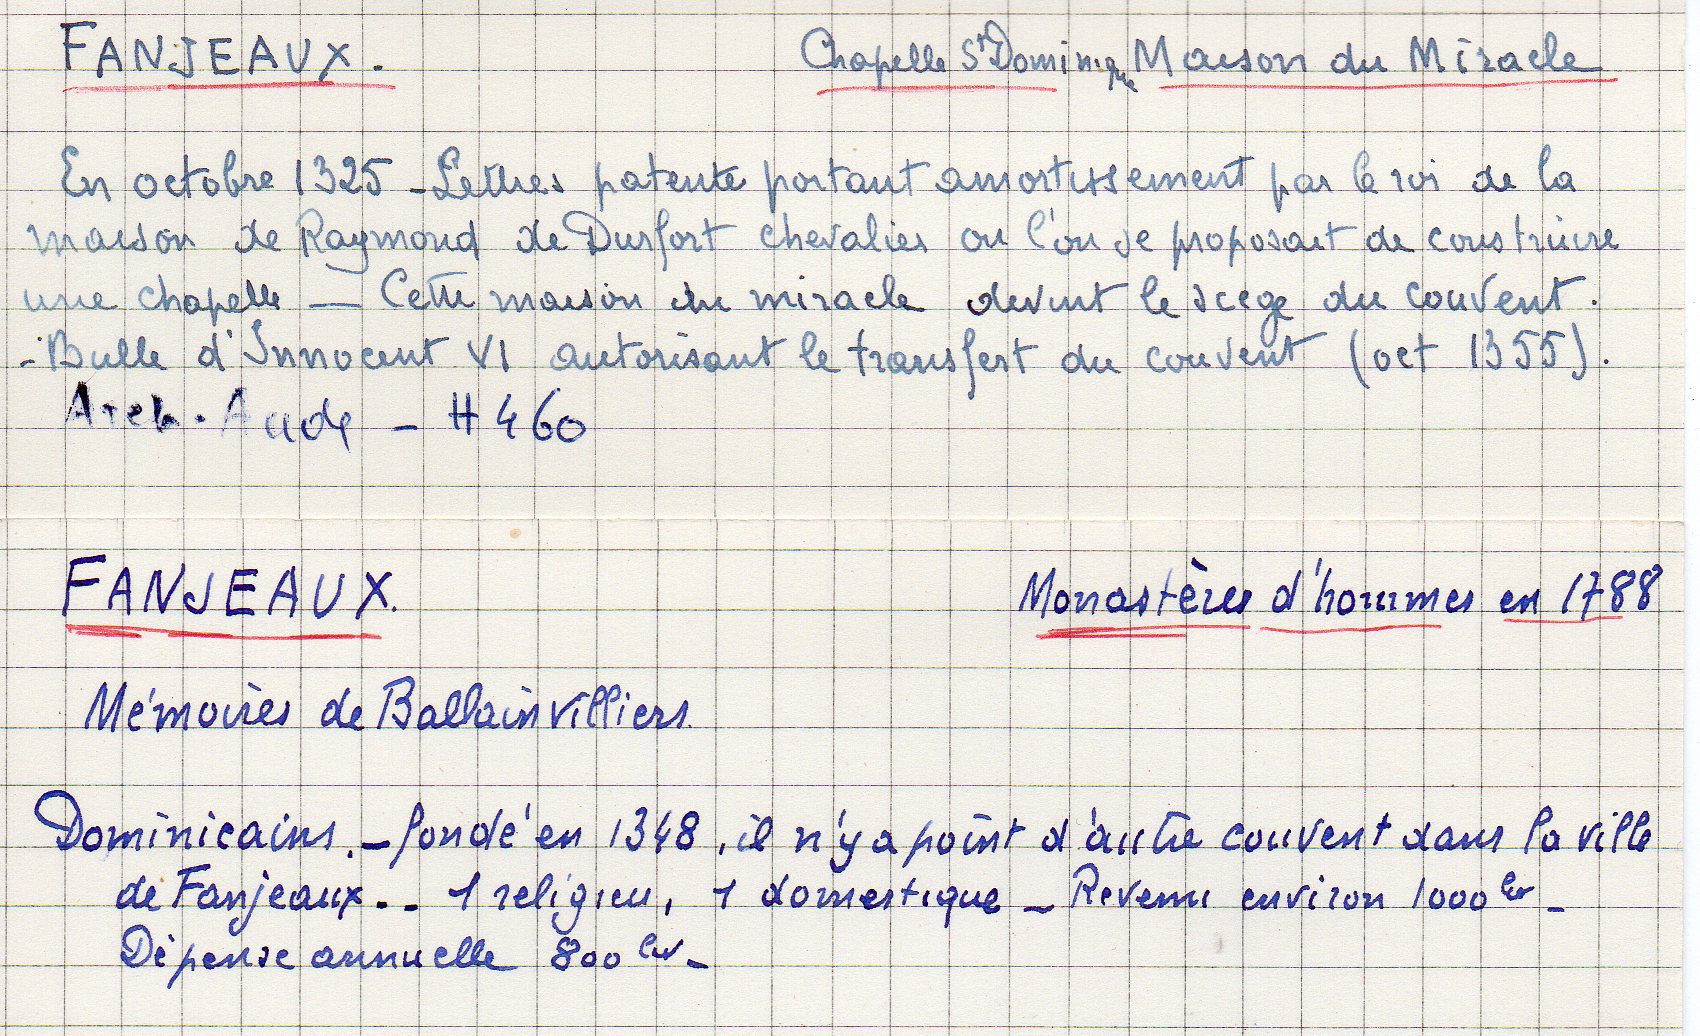 FANJEAUX. Chapelle St Dominique Maison du Miracle
En octobre 1325 - Lettres patente portant amortissement par le roi de la
maison de Raymond de Durfort chevalier ou l'on se proposait de construire
une chapelle — Cette maison du miracle devint le siege du couvent.
- Bulle d'Innocent VI autorisant le transfert du couvent (oct 1355).
Arch. Aude - H 460
FANJEAUX. Monastères d'hommes en 1788
Mémoires de Ballainvilliers
Dominicains. - fondé en 1348, il n'y a point d'autre couvent dans la ville
de Fanjeaux. - 1 religieu, 1 domestique - Revenu environ 1000 lv -
Dépense annuelle 800 lv -